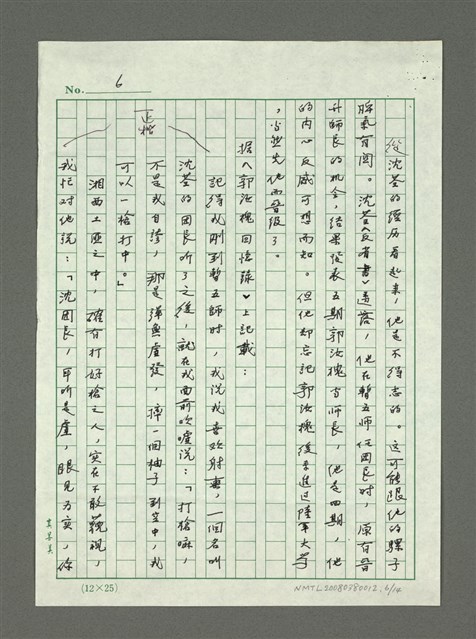 No. 6
從沈荃的經歷看起來，他是不得志的。這可能跟他的騾子
脾氣有關。沈荃〈反省書〉透露，他在暫五師任團長時，原有晉
升師長的機會，結果發表五期郭汝槐當師長，他是四期，他
的內心反感可想而知。但他却忘記郭汝槐後來進過陸軍大學
，當然先他而晉級了。
据〈郭汝槐回憶錄〉上記載：
正楷
記得我剛到暫五師時，我説我喜欢射擊，一個名叫
沈荃的團長听了之後，就在我面前吹噓説：「打槍嘛，
不是我自誇，那是彈無虛發，擲一個柚子到空中，我
可以一槍打中。」
湘西土匪之中，確有打好槍之人，實在不敢藐視，
我忙对他説：「沈團長，耳听是虛，眼見为实，你
(12×25)
NMTL20080380012, 6/14